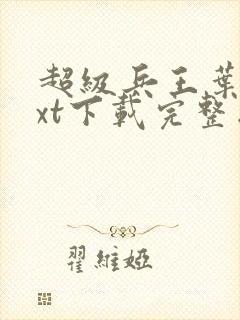 超級兵王葉
xt下載完整
翟維婭